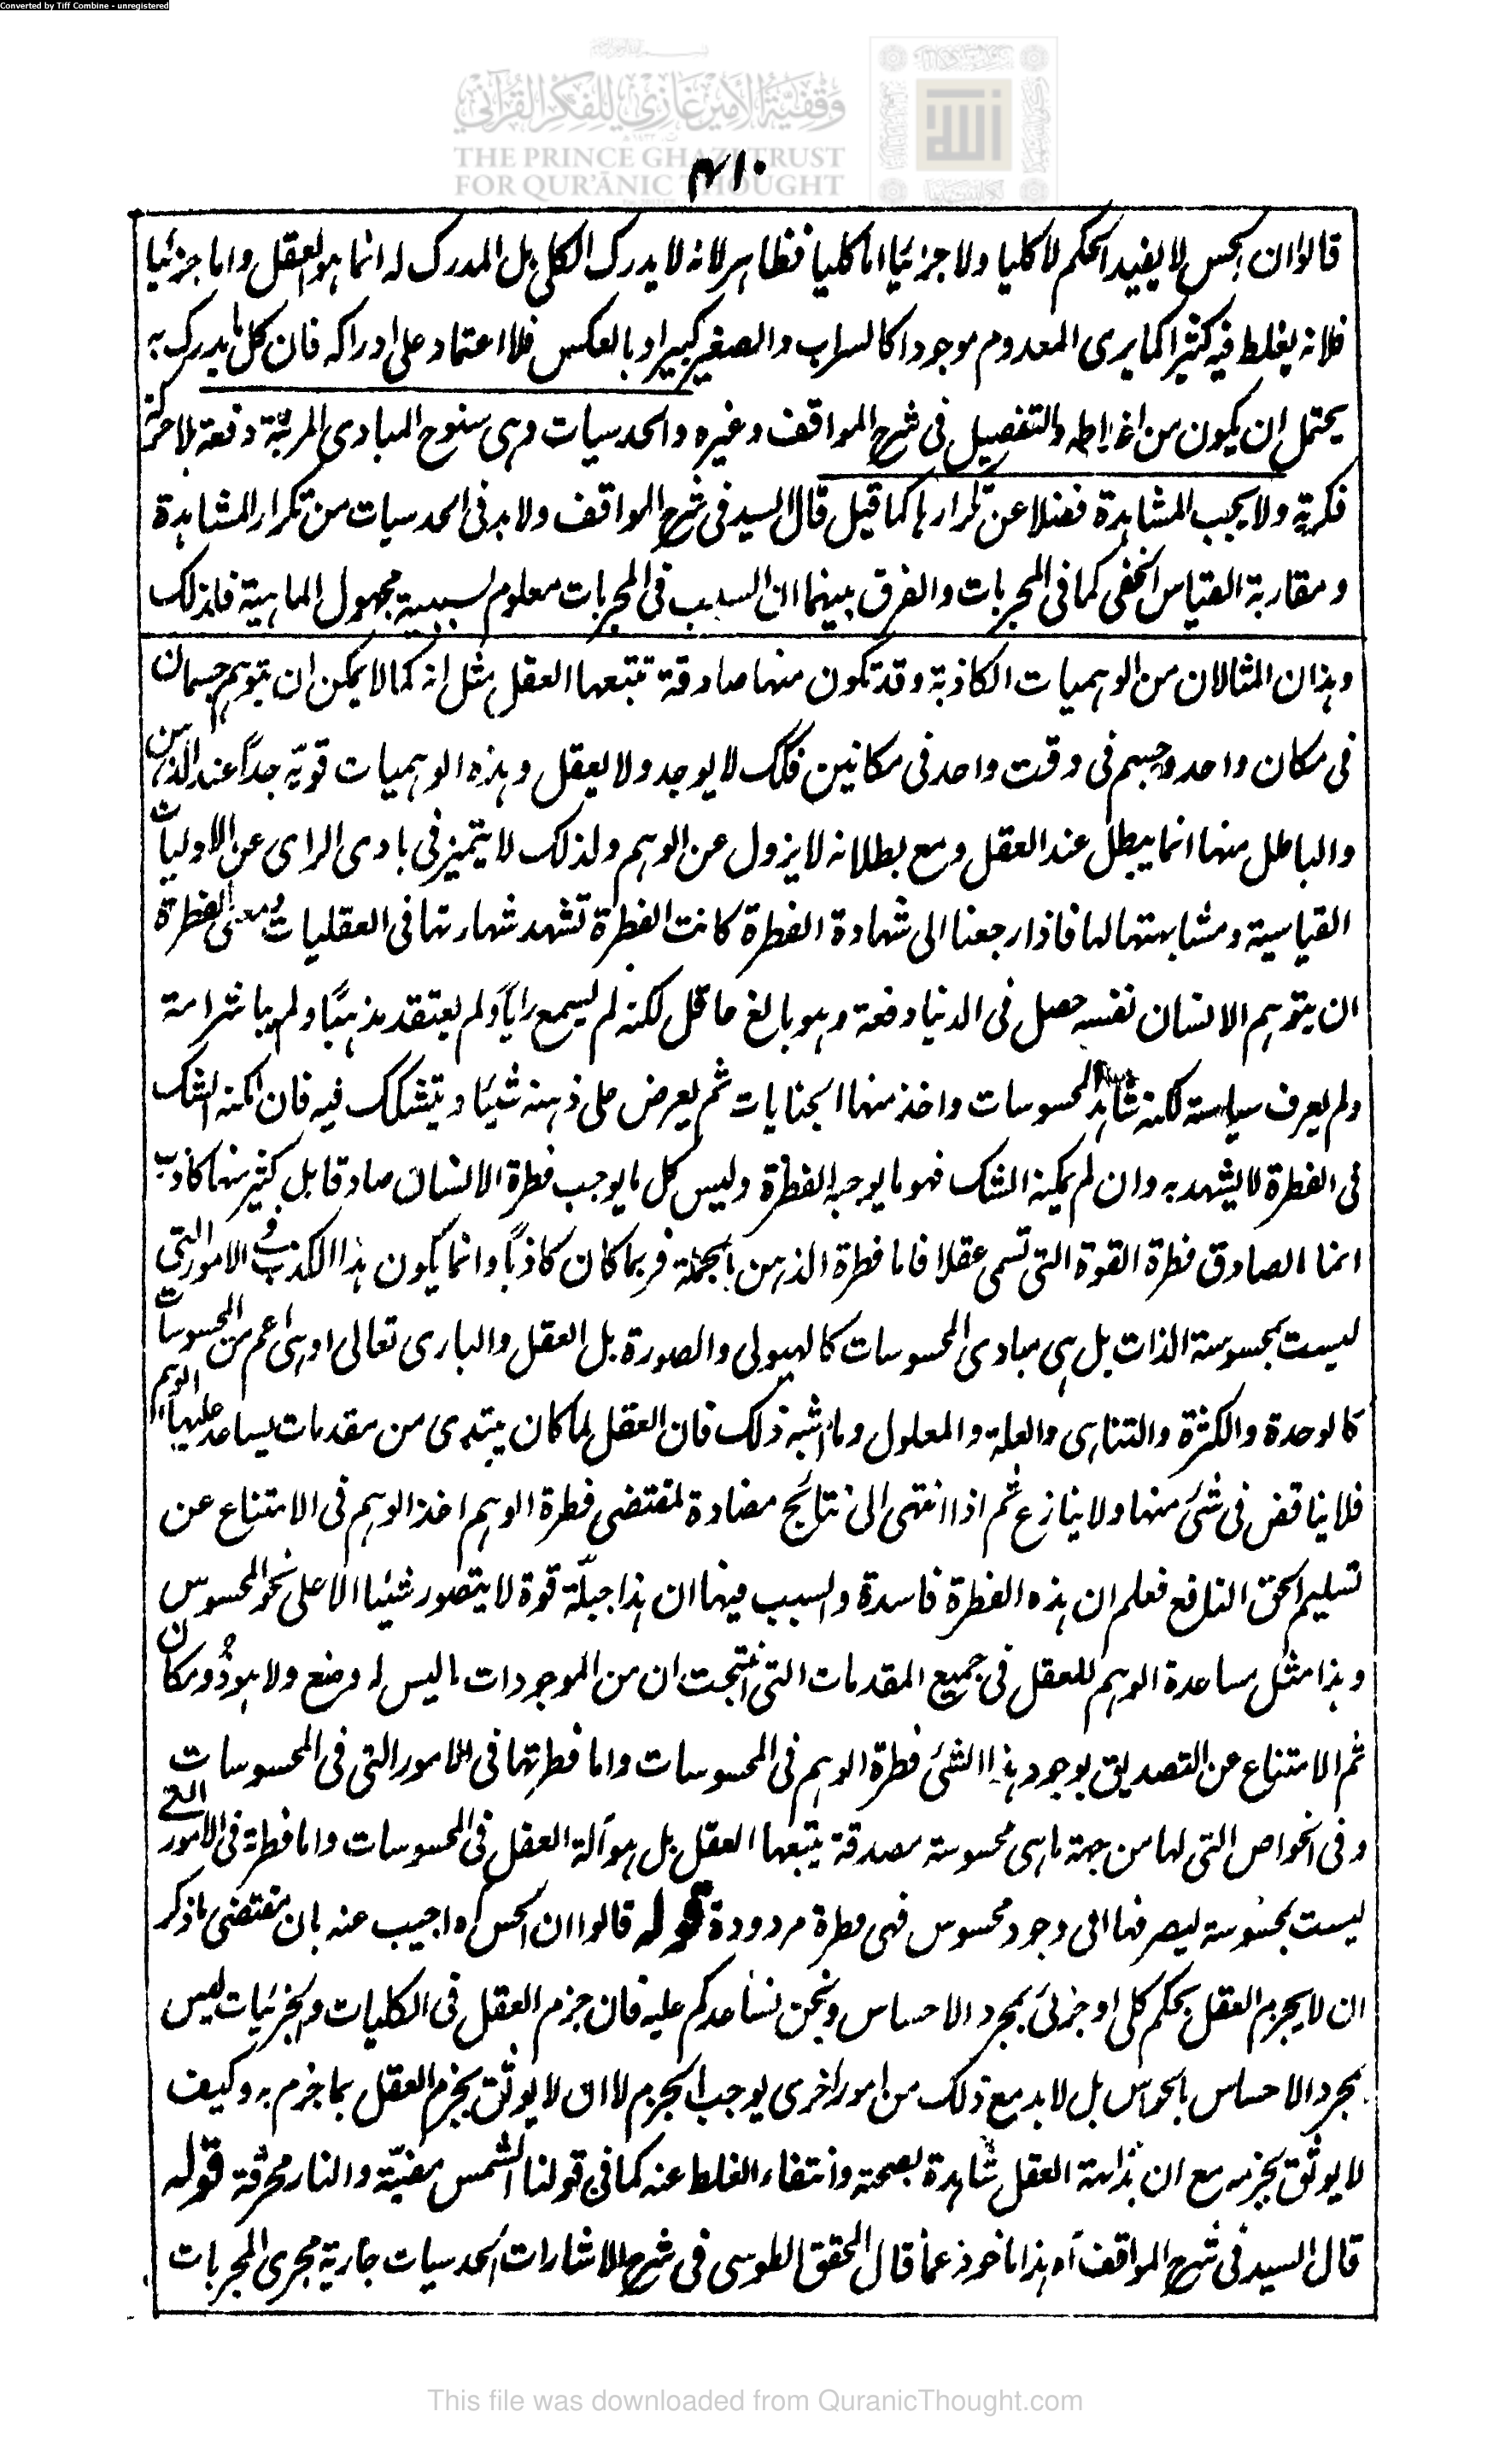 Converted by Tiff Combine - unregistered
وقفية الأمير غازي للفكر القرآني
THE PRINCE GHAZI TRUST
FOR QUR'ĀNIC THOUGHT
٤١٠
قالوا ان الحس لا يفيد الحكم لا كليا ولا جزئيا اما كليا فظاهر لانه لا يدرك الكلي بل المدرك له انما هو العقل واما جزئيا
فلانه يغلط فيه كثيرا كما يرى المعدوم موجودا كالسراب والصغير كبيرا وبالعكس فلا اعتماد على ادراكه فان كل ما يدرك به
يحتمل ان يكون من اغاليطه والتفصيل فى شرح المواقف وغيره والحدسيات وهى سنوح المبادى المرتبة دفعة بلا حركة
فكرية ولا يجب المشاهدة فضلا عن تكرارها كما قيل قال السيد فى شرح المواقف ولا بد فى الحدسيات من تكرار المشاهدة
ومقاربة القياس الخفى كما فى المجربات والفرق بينهما ان السبب فى المجربات معلوم السببية مجهول الماهية فلذلك
وهذان المثالان من الوهميات الكاذبة وقد تكون منها صادقة تتبعها العقل مثل انه كما لا يمكن ان يتوهم جسمان
فى مكان واحد وجسم فى وقت واحد فى مكانين فكك لا يوجد ولا يعقل وهذه الوهميات قوية جداً عند الذهن
والباطل منها انما يبطل عند العقل ومع بطلانه لا يزول عن الوهم ولذلك لا يتميز فى بادى الراى عن الاوليات
القياسية ومشابهتها لها فاذا رجعنا الى شهادة الفطرة كانت الفطرة تشهد شهادتها فى العقليات ومعنى الفطرة
ان يتوهم الانسان نفسه حصل فى الدنيا دفعة وهو بالغ عاقل لكنه لم يسمع راياً ولم يعتقد مذهبًا ولم يباشر امة
ولم يعرف سياسة لكنه شاهد المحسوسات واخذ منها الخيالات ثم يعرض على ذهنه شيئا ويتشكك فيه فان امكنه الشك
فى الفطرة لا يشهد به وان لم يمكنه الشك فهو ما يوجبه الفطرة وليس كل ما يوجب فطرة الانسان صادقا بل كثير منها كاذب
انما الصادق فطرة القوة التى تسمى عقلا فاما فطرة الذهن بالجملة فربما كان كاذبًا وانما يكون هذا الكذب فى الامور التى
ليست بمحسوسة الذات بل هى مبادى المحسوسات كالهيولى والصورة بل العقل والبارى تعالى او هى اعم من المحسوسات
كالوحدة والكثرة والتناهى والعلة والمعلول وما اشبه ذلك فان العقل لما كان يبتدى من مقدمات يساعد عليها الوهم
فلا يناقض فى شئ منها ولا ينازع ثم اذا انتهى الى نتائج مضادة لمقتضى فطرة الوهم اخذ الوهم فى الامتناع عن
تسليم الحق النافع فعلم ان هذه الفطرة فاسدة والسبب فيها ان هذا جبلّة قوة لا يتصور شيئا الا على نحو المحسوس
وهذا مثل مساعدة الوهم للعقل فى جميع المقدمات التى انتجت ان من الموجودات ما ليس له وضع ولا هو ذو مكان
ثم الامتناع عن التصديق بوجود هذا الشئ فطرة الوهم فى المحسوسات واما فطرتها فى الامور التى فى المحسوسات
وفى الخواص التى لها من جهة ما هى محسوسة مصدقة يتبعها العقل بل هو آلة العقل فى المحسوسات واما فطرته فى الامور التى
ليست بمحسوسة ليصرفها الى وجود محسوس فهى فطرة مردودة قوله قالوا ان الحس اه اجيب عنه بان مقتضى ما ذكر
ان لا يجزم العقل بحكم كلى او جزئى بمجرد الاحساس ونحن نساعدكم عليه فان جزم العقل فى الكليات والجزئيات ليس
بمجرد الاحساس بالحواس بل لا بد مع ذلك من امور اخرى يوجب الجزم لا ان لا يوثق بجزم العقل بما جزم به وكيف
لا يوثق بجزمه مع ان بداهة العقل شاهدة بصحته وانتفاء الغلط عنه كما فى قولنا الشمس مضيئة والنار محرقة قوله
قال السيد فى شرح المواقف آه هذا ماخوذ عما قال المحقق الطوسى فى شرح الاشارات الحدسيات جارية مجرى المجربات
This file was downloaded from QuranicThought.com